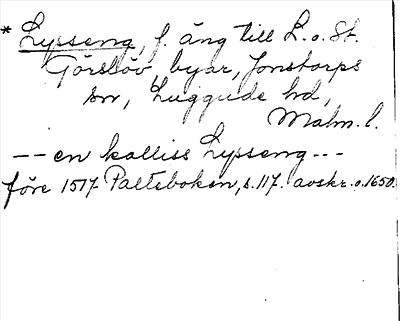 * Lysseng, f. äng till L. o. St.
Görslöv byar, Jonstorps
sn, Luggude hd,
Malm. l.
-- en kalliss Lysseng ---
före 1517 Palteboken, s. 117. avskr. o. 1650.